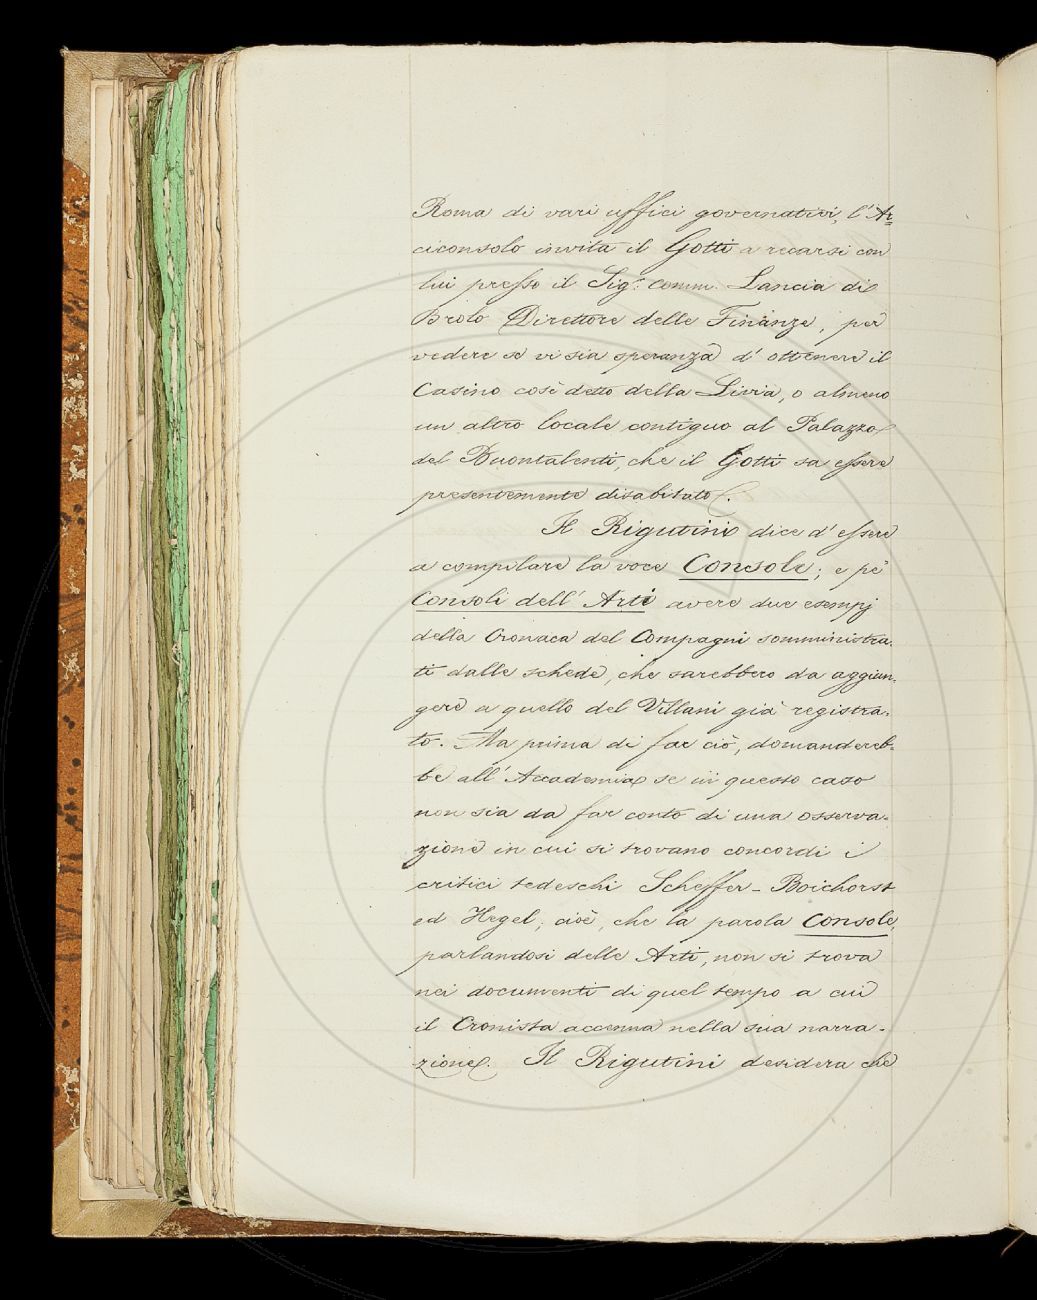 Roma di vari uffici governativi, l'Ar=
ciconsolo invita il Gotti a recarsi con
lui presso il Sig.r Comm. Lancia di
Brolo Direttore delle Finanze, per
vedere se vi sia speranza d'ottenere il
Casino così detto della Livia, o almeno
un altro locale contiguo al Palazzo
del Buontalenti, che il Gotti sa essere
presentemente disabitato.
Il Rigutini dice d'essere
a compilare la voce Console; e pe'
Consoli dell'Arti avere due esempj
della Cronaca del Compagni somministra-
ti dalle schede, che sarebbero da aggiun-
gere a quello del Villani già registra-
to. Ma prima di far ciò, domandereb-
be all'Accademia se in questo caso
non sia da far conto di una osserva-
zione in cui si trovano concordi i
critici tedeschi Scheffer-Boichorst
ed Hegel; cioè, che la parola Console,
parlandosi delle Arti, non si trova
nei documenti di quel tempo a cui
il Cronista accenna nella sua narra-
zione. Il Rigutini desidera che